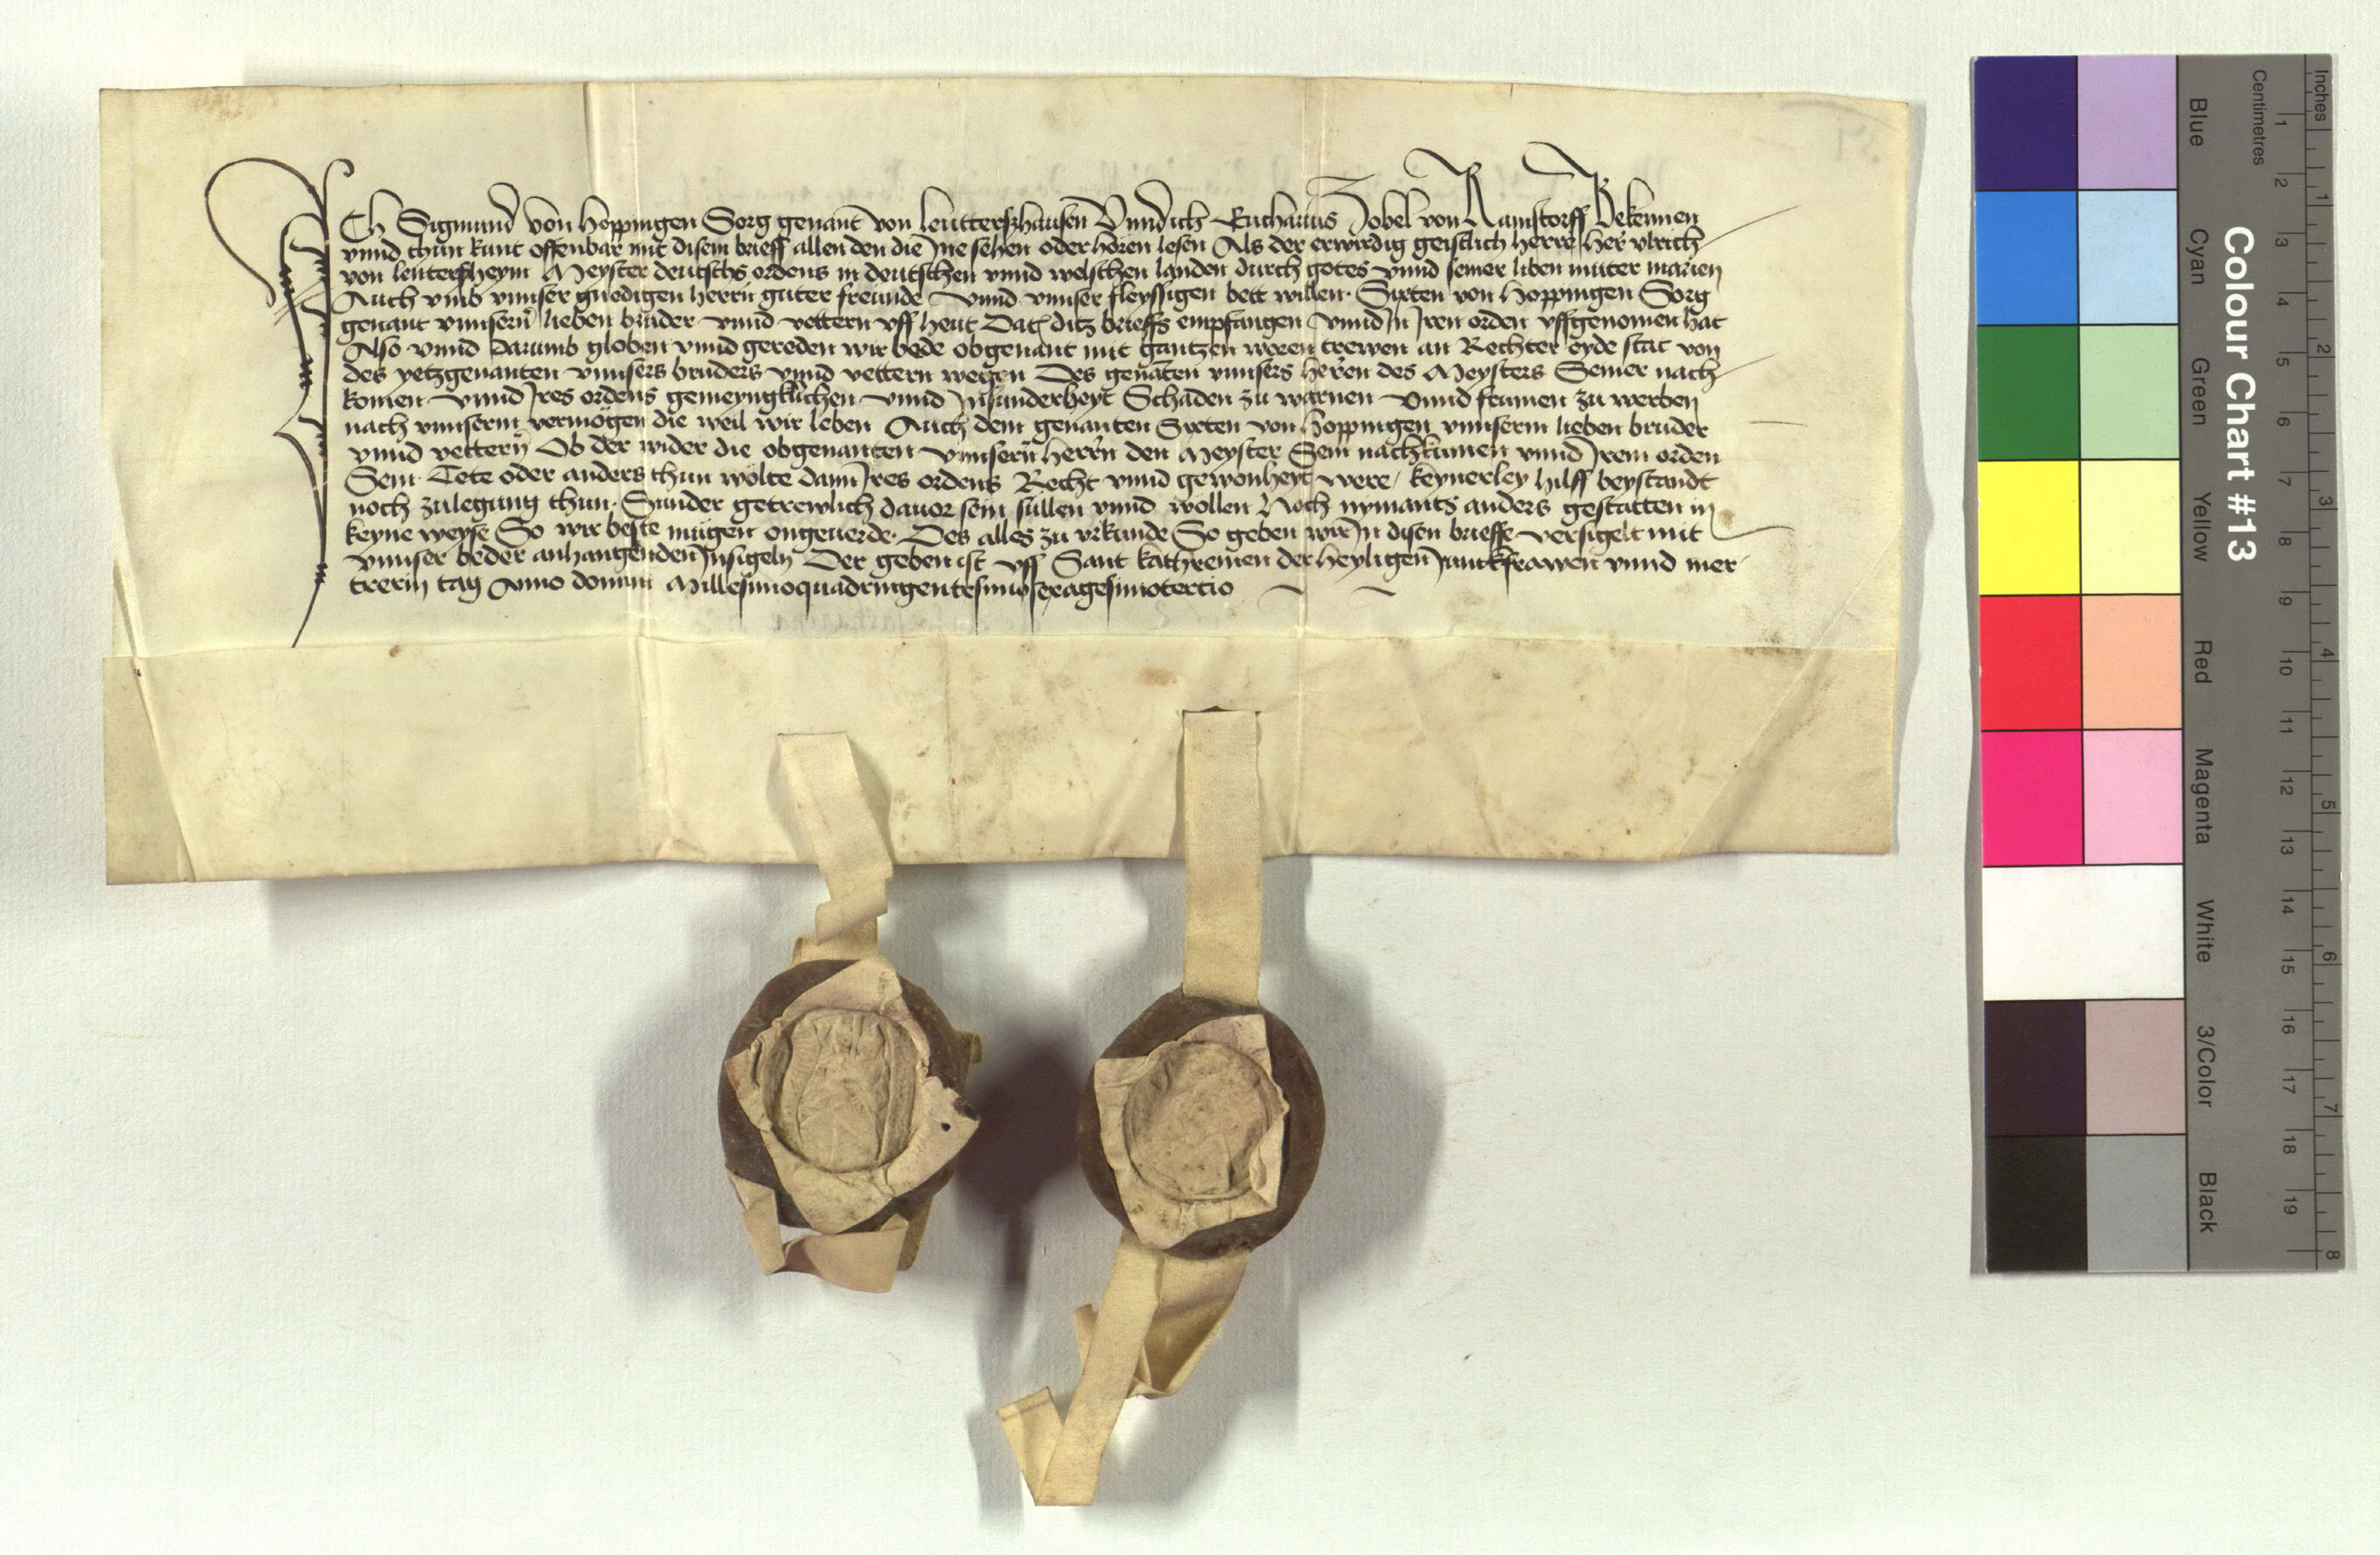 ICh Sigmund von Hoppingen Sorg genant von leuttershausen Vnnd ich Eucharius Zobel von Ramstorff Bekennen
vnnd thun kunt offenbar mit disem brieff allen den die Jne sehen oder hören lesen Als der erwirdig geistlich herre her vlrich
von leutersheym Meyster deutschs ordens in deutschen vnnd welschen landen durch gotes vnnd seiner liben muter marien
Auch vmb vnnser gnedigen herrn guter freunde vnnd vnnser fleyssigen bett willen. Sixten von Hoppingen Sorg
genant vnnsern lieben bruder vnnd vettern vff heut Dat ditz brieffs empfangen vnnd Jn Jren orden vffgenomen hat
Also vnnd darumb globen vnnd gereden wir bede obgenant mit gantzen waren trewen an Rechter eyde stat von
des yetzgenanten vnnsers bruders vnnd vettern wegen Des genaten vnnsers heren des Meysters Seiner nach
komen vnnd Jres ordens gemeyngklichen vnnd Jnsunderheyt Schaden zu warnen vnnd frumen zu werben
nach vnnserm vermögen die weil wir leben Auch dem genanten Sixten von Hoppingen vnnserm lieben bruder
vnnd vettern Ob der wider die obgenanten vnnsern herrn den Meyster Sein nachkumen vnnd Jrem orden
Sein Tete oder anders thun wolte dann Jres ordens Recht vnnd gewonheyt were, keynerley hilff beystandt
noch zulegung thun. Sunder getrewlich dauor sein sullen vnnd wollen Noch nymants anders gestatten in
keyne weyse So wir beste mugen ongeuerde. Des alles zu vrkunde So geben wir Jn disen brieffe versigelt mit
vnnser beder anhangenden Jnsigeln Der geben ist vff Sant kathreinen der heyligen Junckfrawen vnnd mer
trerin tag Anno domini Millesimoquadringentesimosexagesimotertio
Colour Chart #13
Blue
Cyan
Green
Yellow
Red
Magenta
White
3/Color
Black
Centimetres
1 2 3 4 5 6 7 8 9 10 11 12 13 14 15 16 17 18 19
Inches
1 2 3 4 5 6 7 8